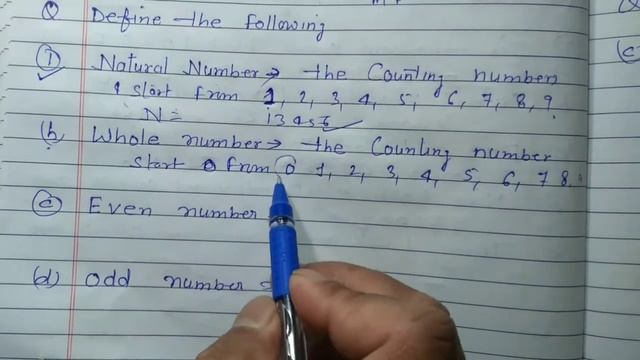 Q Define the following
① Natural Number → the Counting number
start from 1, 2, 3, 4, 5, 6, 7, 8, 9.
N = 13456
(b) Whole number → the Counting number
start from 0 1, 2, 3, 4, 5, 6, 7 8.
(c) Even number
(d) odd number =